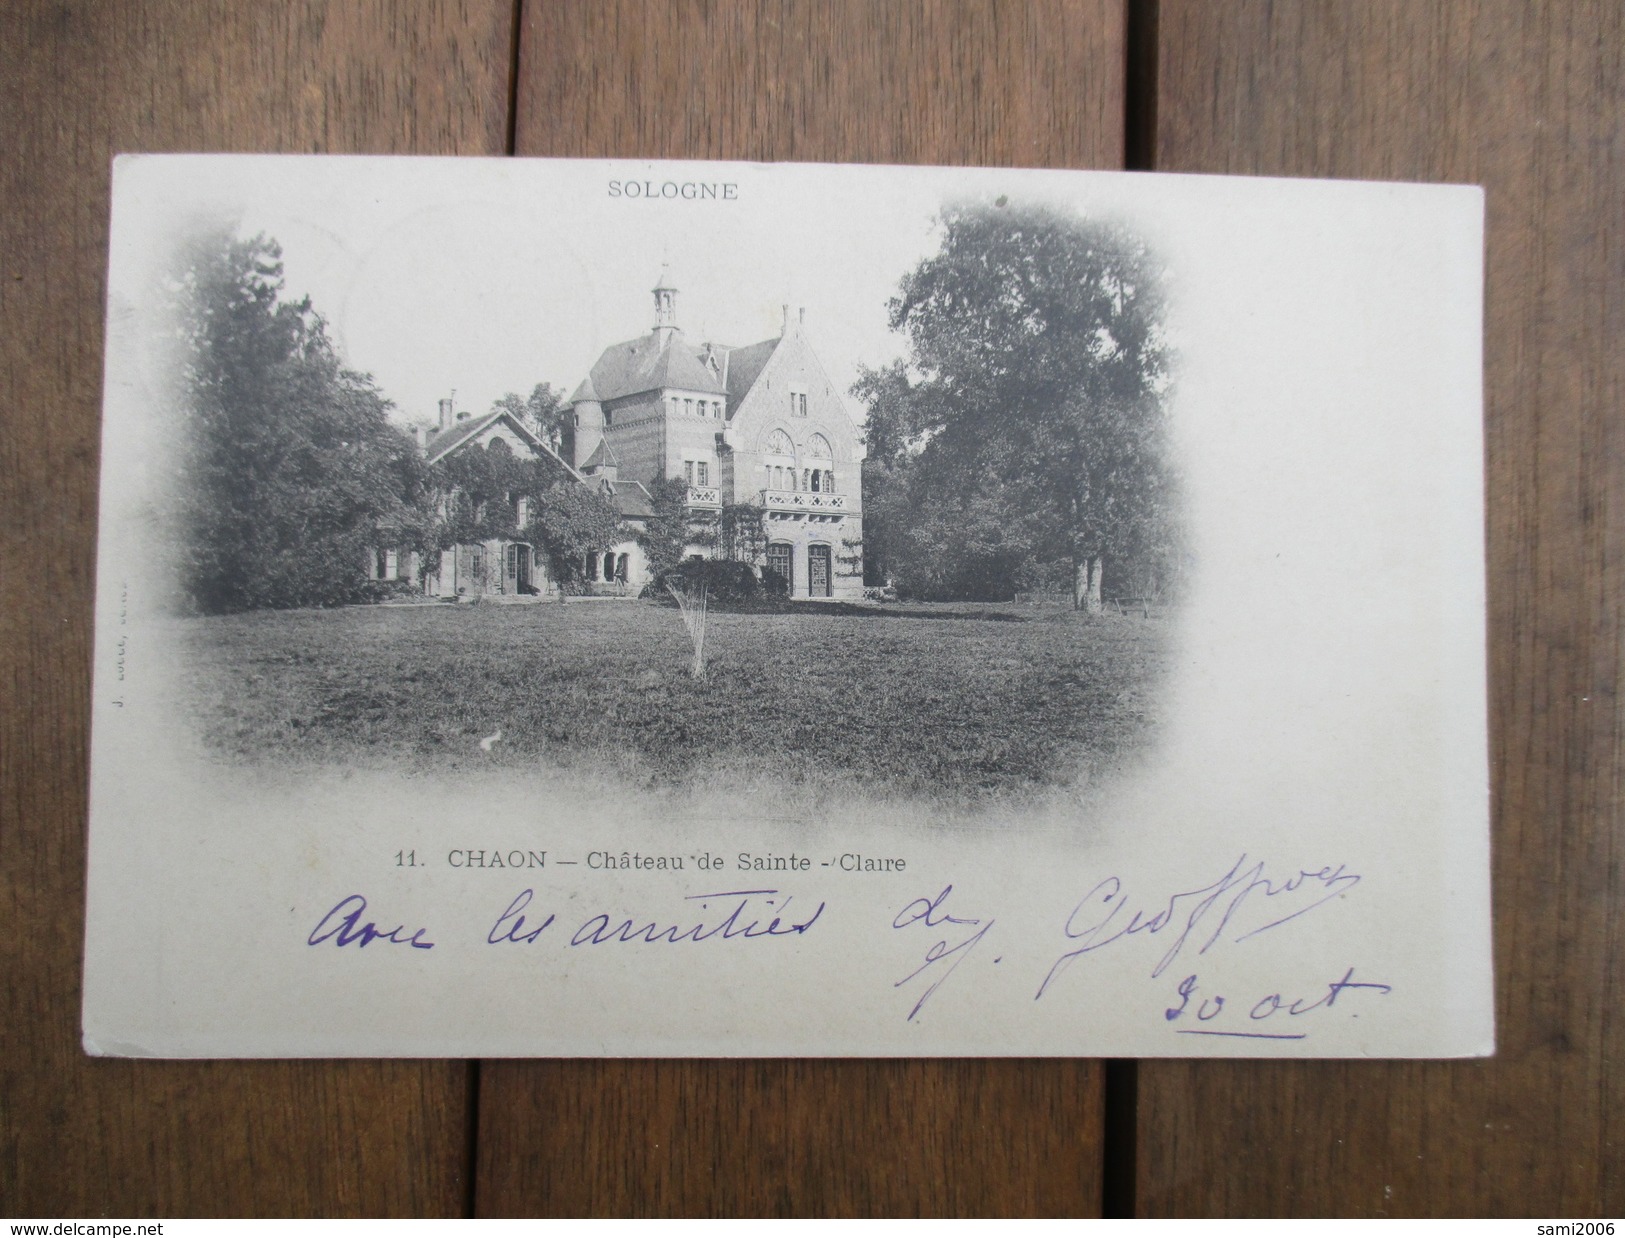 SOLOGNE
11. CHAON — Château de Sainte - Claire
Avec les amitiés de J. Geoffroy
30 oct.
website:delcampe.net
sami2006